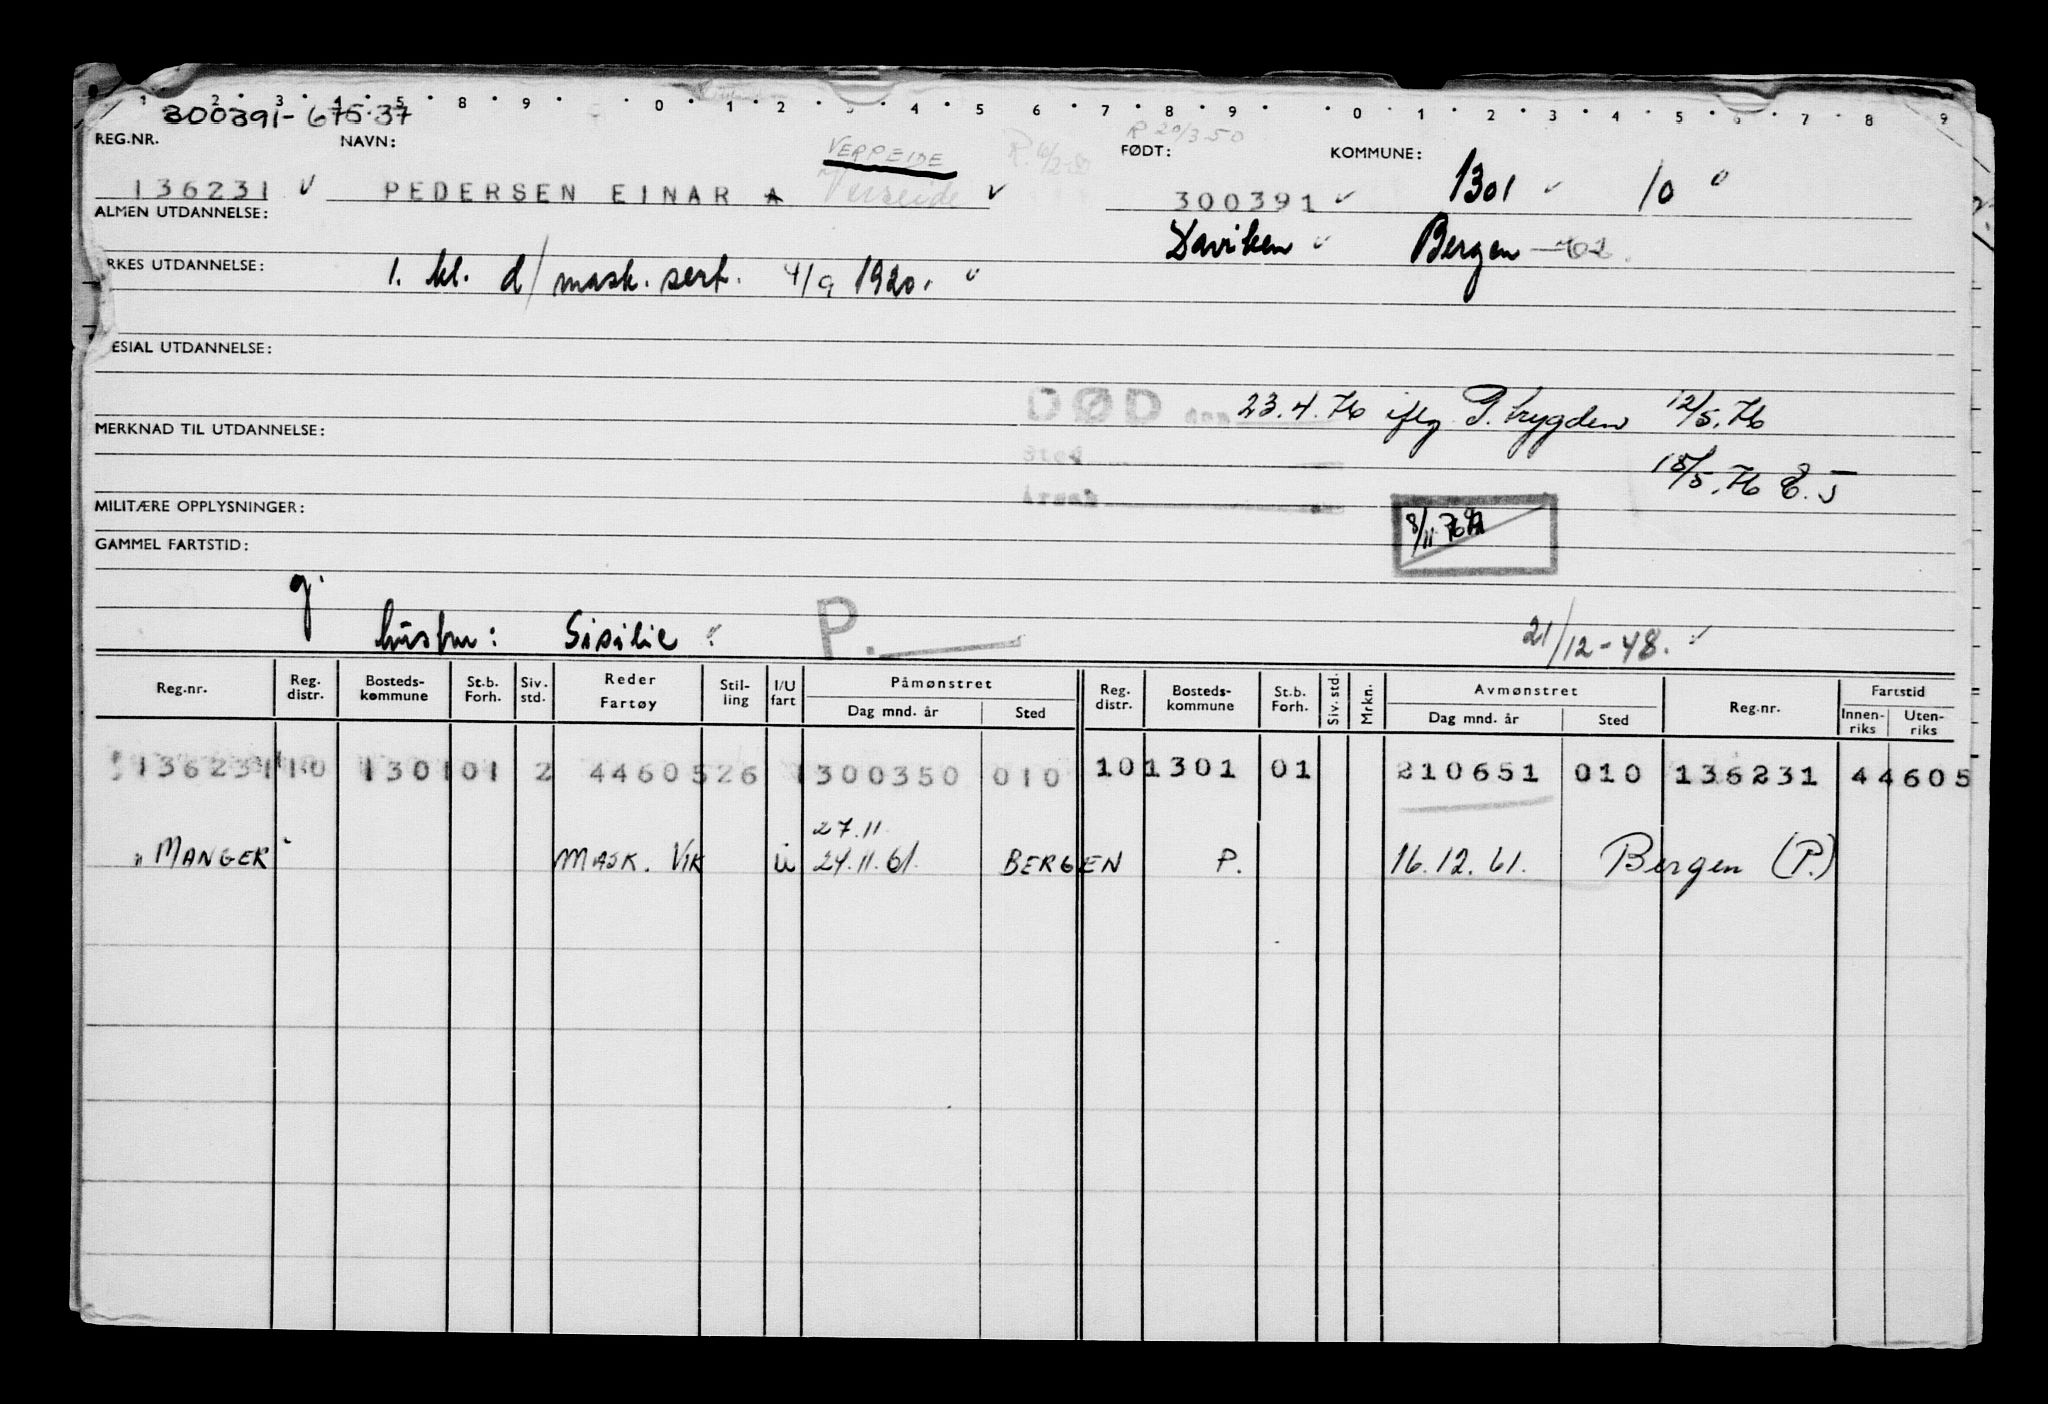 1 2 3 4 5 8 9 0 1 2 3 4 5 6 7 8 9 0 1 2 3 4 5 6 7 8 9
300391-675.37
R 20/3-50
REG.NR. NAVN: FØDT: KOMMUNE:
VERPEIDE
136231 PEDERSEN EINAR A Verpeide 300391 1301 10
ALMEN UTDANNELSE:
Daviken Bergen
RKES UTDANNELSE: 1. kl. d/mask. sert. 4/9 1920.
ESIAL UTDANNELSE:
DØD den 23.4.76 iflg P. trygden 12/5.76
MERKNAD TIL UTDANNELSE:
Sted
18/5.76 E.J
Årsak
MILITÆRE OPPLYSNINGER:
8/11 76
GAMMEL FARTSTID:
g.
hustru: Sisilie P. 21/12-48.
Reg.nr. Reg. distr. Bosteds-kommune St.b. Forh. Siv. std. Reder Fartøy Stil-ling I/U fart Påmønstret Dag mnd. år Sted Reg. distr. Bosteds-kommune St.b. Forh. Siv. std. Mrkn. Avmønstret Dag mnd. år Sted Reg.nr. Fartstid Innen-riks Uten-riks
136231 10 1301 01 2 44605 26 1 300350 010 10 1301 01 210651 010 136231 44605
27.11
"MANGER" MASK. VIK U 24.11.61. BERGEN P. 16.12.61. Bergen (P.)